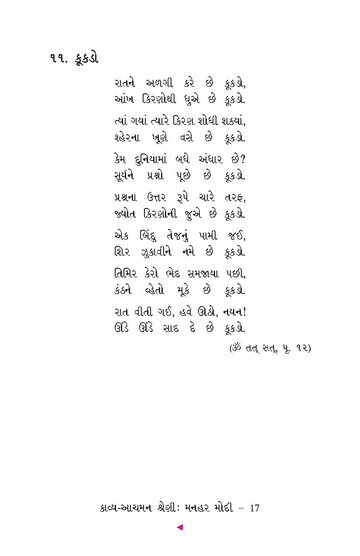 ૧૧. કૂકડો
રાતને અળગી કરે છે કૂકડો,
આંખ કિરણોથી ધુએ છે કૂકડો.
ત્યાં ગયાં ત્યારે કિરણ શોધી શક્યાં,
શ્હેરના ખૂણે વસે છે કૂકડો.
કેમ દુનિયામાં બધે અંધાર છે?
સૂર્યને પ્રશ્નો પૂછે છે કૂકડો.
પ્રશ્નના ઉત્તર રૂપે ચારે તરફ,
જ્યોત કિરણોની જુએ છે કૂકડો.
એક બિંદુ તેજનું પામી જઈ,
શિર ઝુકાવીને નમે છે કૂકડો.
તિમિર કેરો ભેદ સમજાયા પછી,
કંઠને વ્હેતો મૂકે છે કૂકડો.
રાત વીતી ગઈ, હવે ઊઠો, નયન!
ઊંડે ઊંડે સાદ દે છે કૂકડો.
(ૐ તત્ સત્, પૃ. ૧૨)
કાવ્ય-આચમન શ્રેણીઃ મનહર મોદી – 17